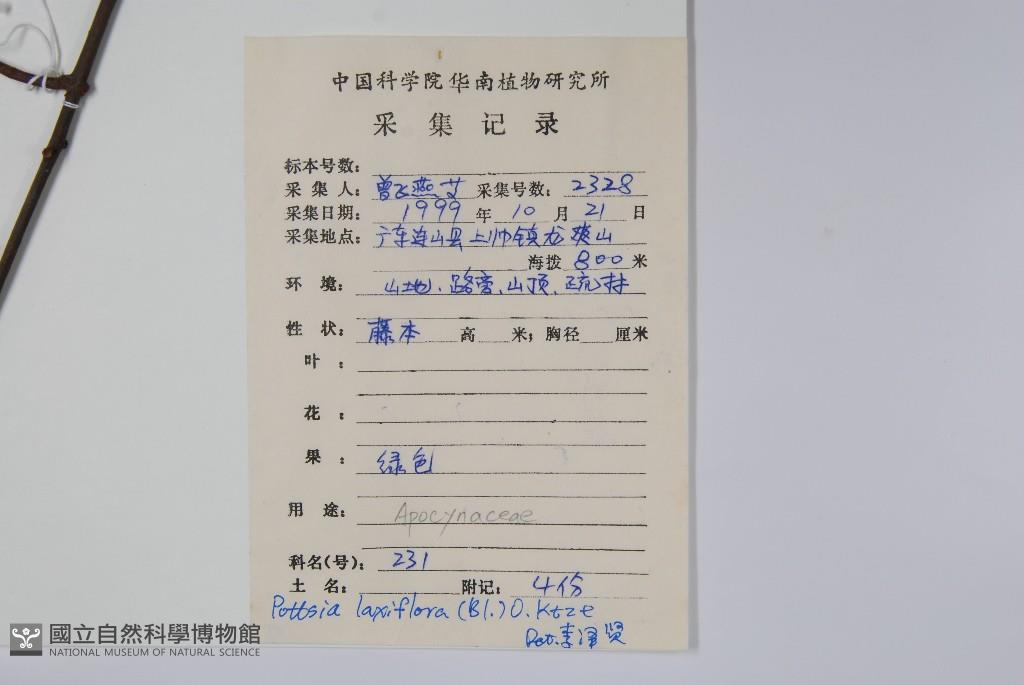 中国科学院华南植物研究所
采集记录
标本号数：
采集人：曾飞燕 艾 采集号数：2328
采集日期：1999年10月21日
采集地点：广东连山县上帅镇龙爽山
海拨800米
环境：山地、路旁、山顶、疏林
性状：藤本 高 米；胸径 厘米
叶：
花：
果：绿色
用途：Apocynaceae
科名(号)：231
土名： 附记：4份
Pottsia laxiflora (Bl.) O. Ktze
Det. 李泽贤
國立自然科學博物館
NATIONAL MUSEUM OF NATURAL SCIENCE